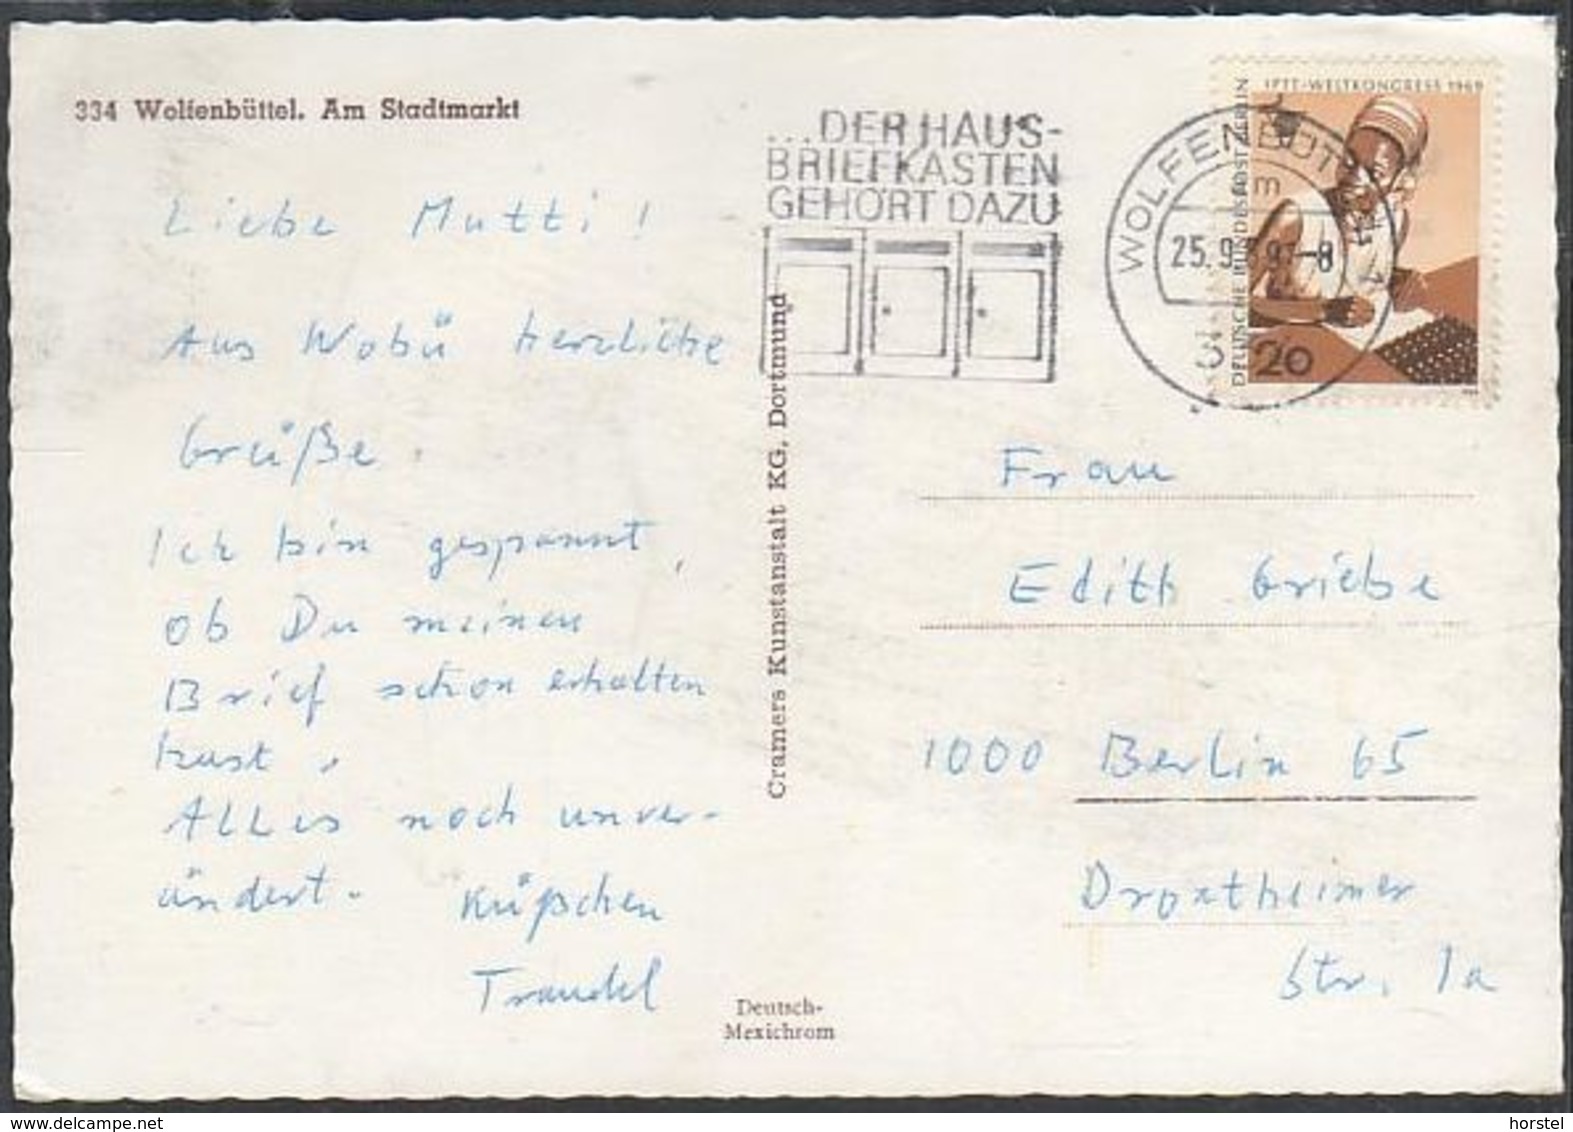 334 Wolfenbüttel. Am Stadtmarkt
Liebe Mutti!
Aus Wobü herzliche
Grüße.
Ich bin gespannt,
ob Du meinen
Brief schon erhalten
hast.
Alles noch unver-
ändert. Küßchen
Traudel
Cramers Kunstanstalt KG, Dortmund
Deutsch-
Mexichrom
...DER HAUS-
BRIEFKASTEN
GEHÖRT DAZU
WOLFENBÜTTEL 1
25.9.
-8
IPTT-WELTKONGRESS 1969
DEUTSCHE BUNDESPOST BERLIN
20
Frau
Edith Griebe
1000 Berlin 65
Drontheimer
Str. 1a
www.delcampe.net
horstel